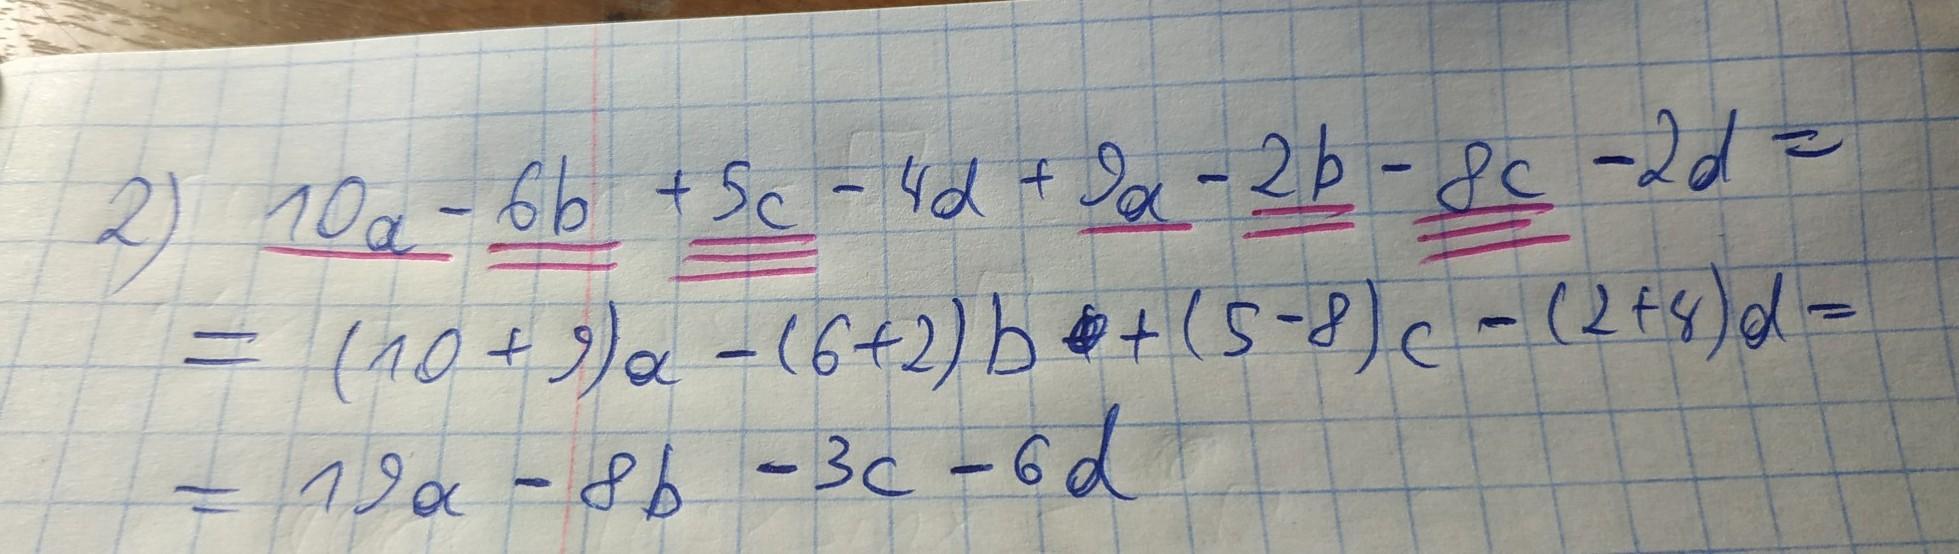 2) 10a - 6b + 5c - 4d + 9a - 2b - 8c - 2d =
= (10 + 9)a - (6+2)b + (5-8)c - (2+4)d =
= 19a - 8b - 3c - 6d